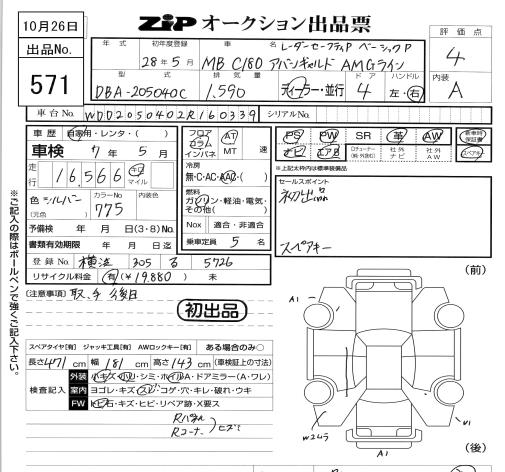 10月26日
出品No.
571
ZIP オークション出品票
評価点
4
内装
A
年式
初年度登録
28年5月
車名
レーダーセーフティP ベーシックP
MB C180 アバンギャルド AMGライン
型式
DBA-205040C
排気量
1,590
ディーラー・並行
ドア
4
ハンドル
左・右
車台No.
WDD2050402R160339
シリアルNo.
車歴 自家用・レンタ・( )
車検 7年5月
走行 16,566 キロ マイル
色 シルバー
(元色)
カラーNo
775
内装色
予備検 年 月 日(3・8)No.
書類有効期限 年 月 日迄
登録No. 横浜 305 る 5726
リサイクル料金 有(¥19,880) 未
フロア
コラム
インパネ
AT
MT 速
冷房
無・C・AC・AAC・( )
燃料
ガソリン・軽油・電気・
その他( )
Nox 適合・非適合
乗車定員 5 名
PS PW SR 革 AW
ナビ エアB
社外ナビ
社外AW
新車時保証書
スペアキー
※上記太枠内は標準装備品
セールスポイント
初出品
スペアキー
※ご記入の際はボールペンで強くご記入下さい。
(注意事項) 取・テ 後日
初出品
スペアタイヤ[有] ジャッキ工具[有] AWロックキー[有] ある場合のみ○
長さ 471 cm 幅 181 cm 高さ 143 cm (車検証上の寸法)
検査記入
外装 小キズ・凹リ・シミ・ホイルA・ドアミラー(A・ワレ)
室内 ヨゴレ・キズ・スレ・コゲ・穴・キレ・破れ・ウキ
FW トビ石・キズ・ヒビ・リペア跡・X要ス
Rコーナー
(前)
A1
A1
(後)